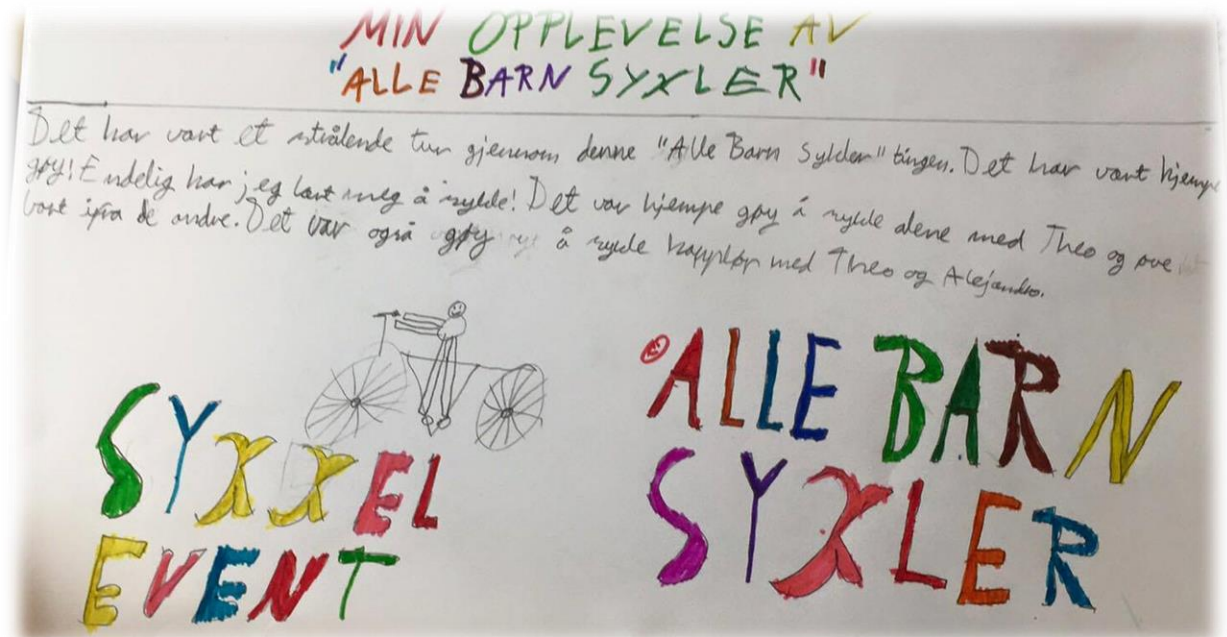 MIN OPPLEVELSE AV
"ALLE BARN SYKLER"
Det har vært et strålende tur gjennom denne "Alle Barn Sykler" tingen. Det har vært hjempe
gøy! Endelig har jeg lært meg å sykle! Det var hjempe gøy å sykle alene med Theo og øve
bort ifra de andre. Det var også gøy å sykle kappløp med Theo og Alejandro.
SYKKEL
EVENT
ALLE BARN
SYKLER